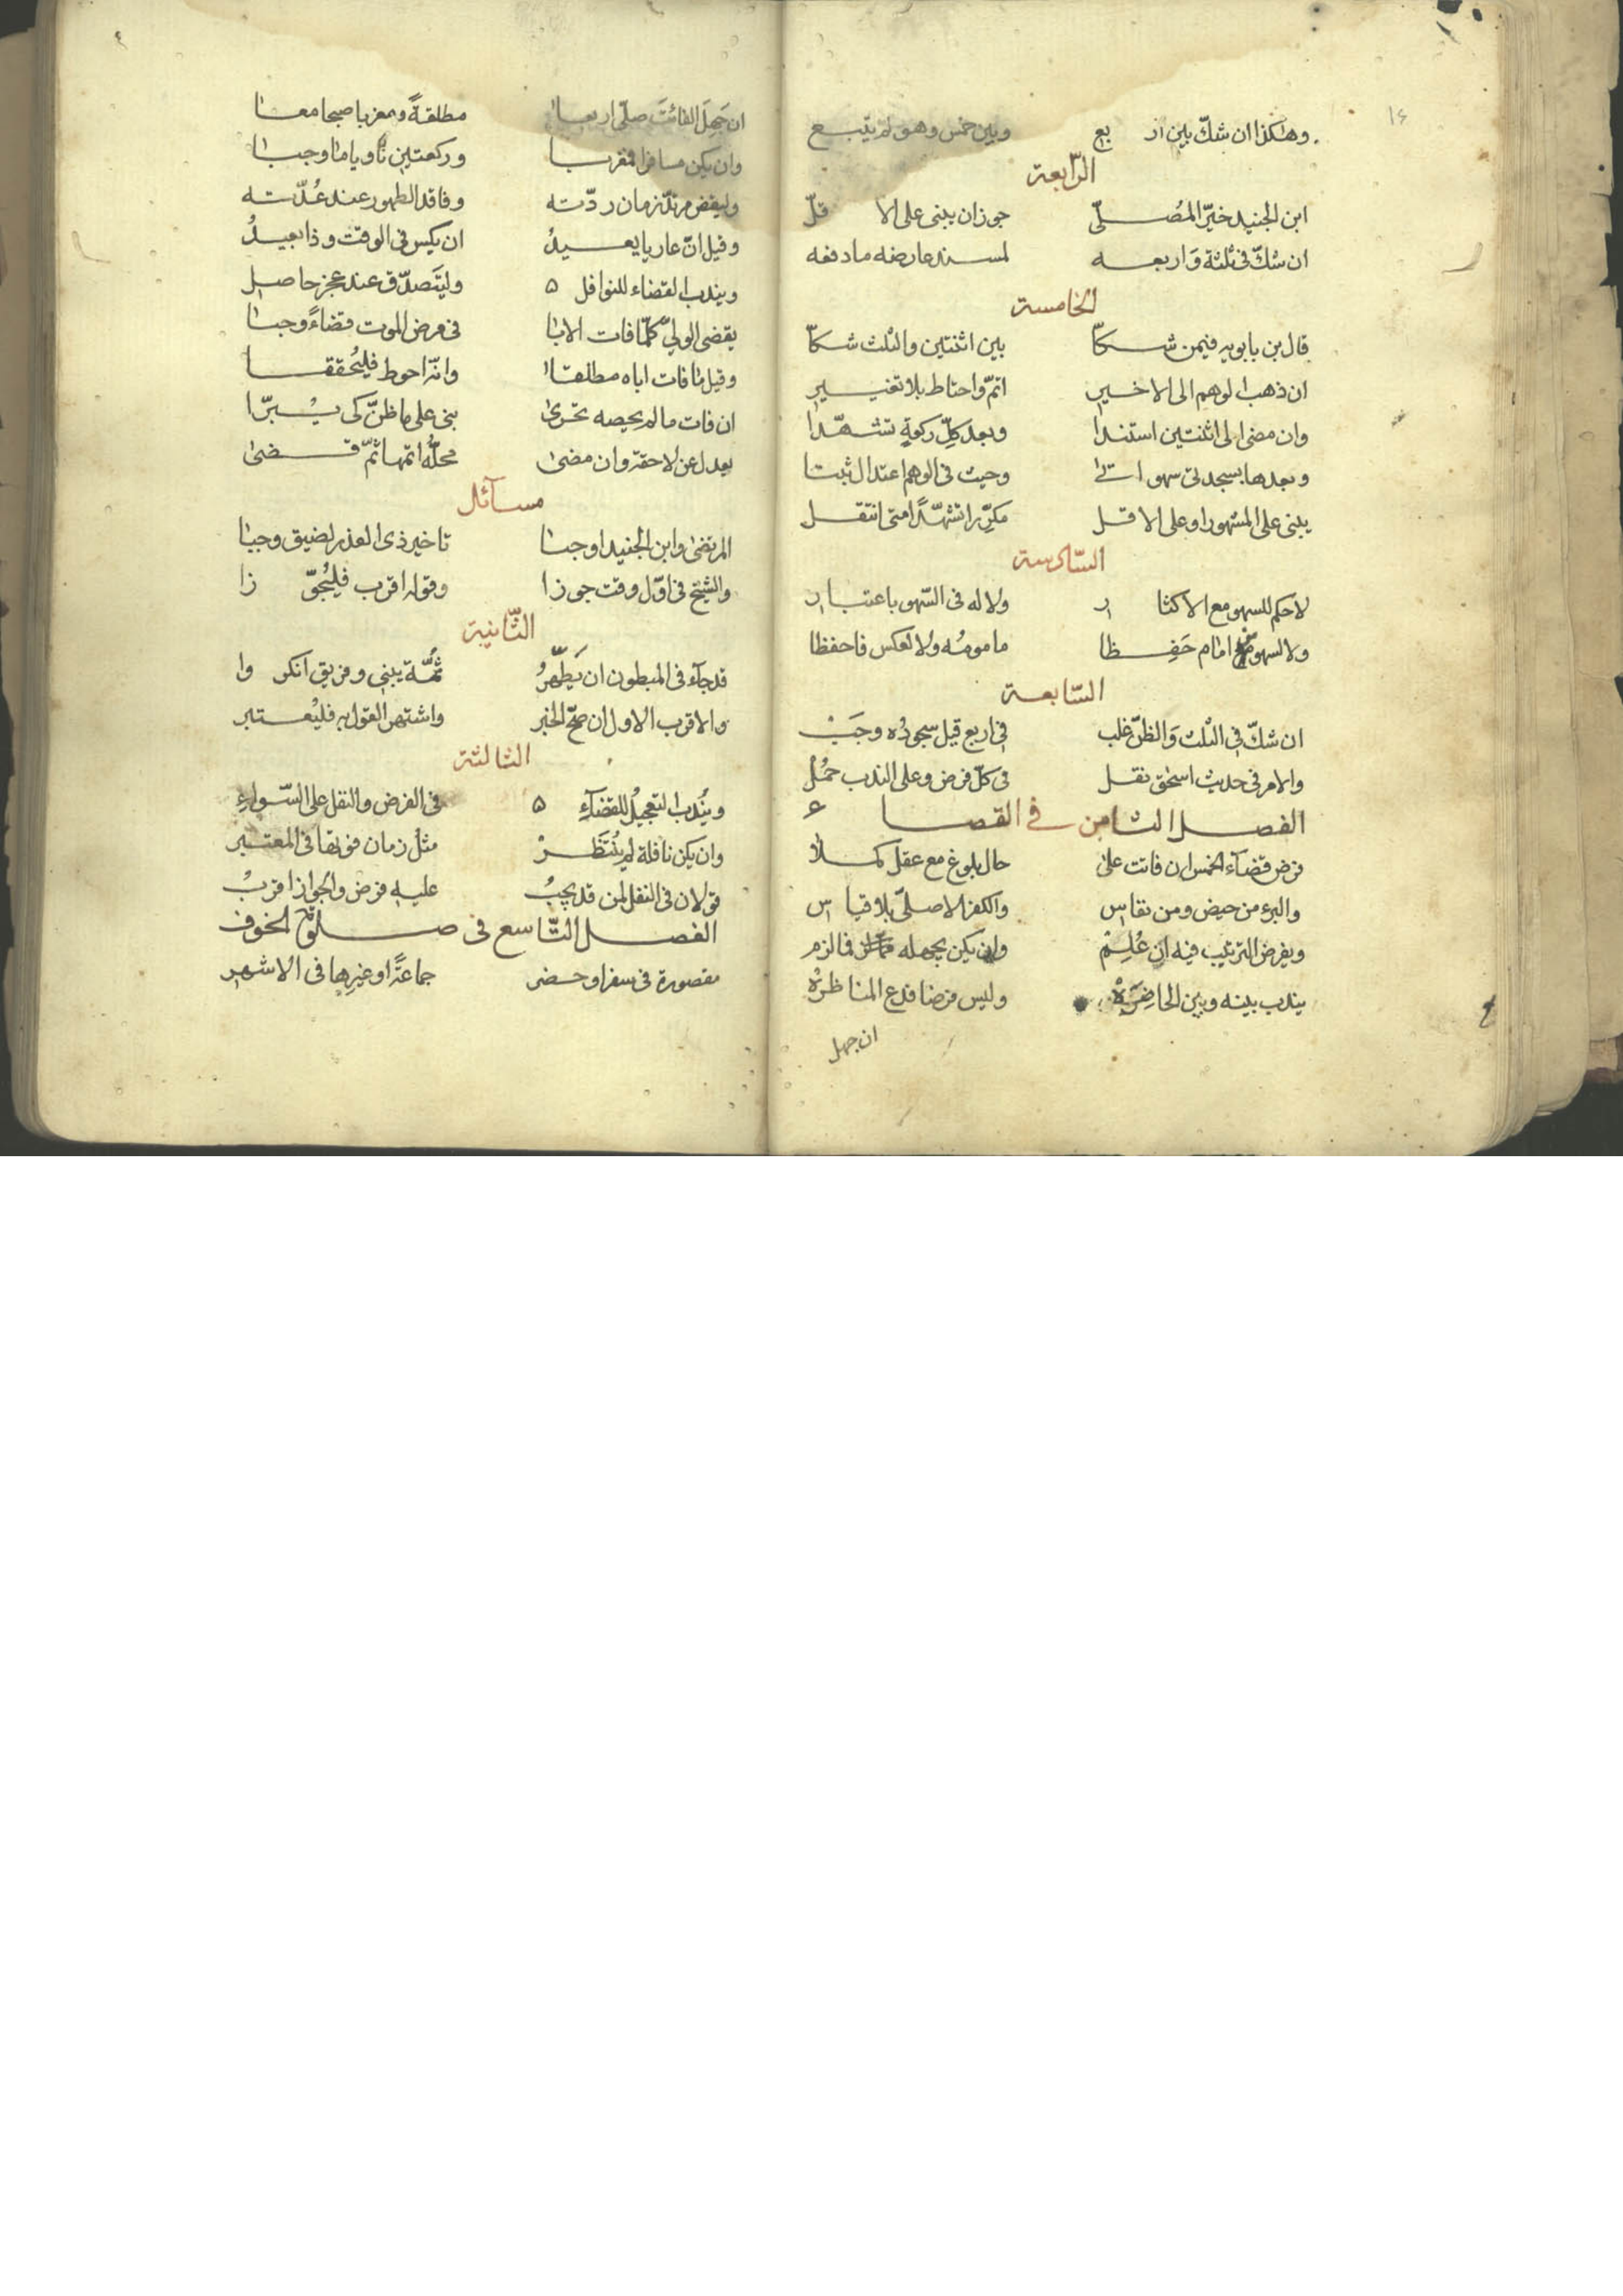 ١٤
وهكذا ان شكّ بين اربع وبين خمس وهو لم يتّبع
الرّابعة
ابن الجنيد خيّر المُصلّى جوزان يبنى على الاقلّ
ان شكّ فى ثلثة وَاربعه لمسند عارضه ما دفعه
الخامسة
قال بن بابويه فيمن شكّا بين اثنتين والثلث شكّا
ان ذهب الوهم الى الاخير اتمّ واحتاط بلا تغيير
وان مضى الى اثنتين استندا وبعد كلّ ركعةٍ تشهّدا
وبعدها بسجدتى سهو اتى وحيث فى الوهم اعتدال ثبتا
يبنى على المشهور او على الاقل مكرّرا تشهّدًا متى انتقل
السّادسة
لا حكم للسهو مع الاكثار ولا له فى السّهو باعتبار
ولا لسهو امام حَفِظا مامومُه ولا لعكس فاحفظا
السّابعة
ان شكّ فى الثلث وَالظنّ غلب فى اربع قيل سجودُه وجَبْ
والامر فى حديث اسحٰق نقل فى كلّ فرض وعلى الندب حمُلْ
الفصل الثامن فى القضاء
فرض قضآء الخمس ان فاتت على حال بلوغ مع عقل كملا
والبرء من حيض ومن نفاس والكفر الاصلىّ بلا قياس
ويفرض الترتيب فيه ان عُلِمْ وان يكن يجهله فما لزم
يندب بينه وبين الحاضِرَةْ وليس فرضا فدع المناظرةْ
ان جهل
ان جَهِلَ الفائتَ صلّى اربعا مطلقةً ومغربا صبحا معا
وان يكن مسافرا فمغربا وركعتين ناويا ما وجبا
وليقض مرتدّ زمان ردّته وفاقد الطهور عند عُدّته
وقيل انّ عاريا يعيدُ ان يكس فى الوقت وذا بعيدُ
ويندب القضاء للنوافل ٥ وليتَصدّق عند عجز حاصل
يقضى الولىّ كلّما فات الابا فى مرض الموت قضاءً وجبا
وقيل ما فات اباه مطلقا وانّه احوط فليُحققا
ان فات ما لم يحصه تحرّى بنى على ما ظنّ كى يبرّا
يعدل عن لاحقة وان مضى محلّه اتمها ثمّ قضى
مسآئل
المرتضى وابن الجنيد اوجبا تاخير ذى العذر لضيق وجبا
والشيخ فى اوّل وقت جوزا وقوله اقرب فليُجوّزا
الثّانية
قد جآء فى المبطون ان يَطّهّرُ ثمّة يبنى وفريق انكروا
والاقرب الاول ان صحّ الخبر واشتهر القول به فليُعتبر
الثالثة
ويُندب التعجيلُ للقضآءِ ٥ فى الفرض والنفل على السّوآءِ
وان يكن نافلة لم يُنتَظَرْ مثل زمان فوتها فى المعتبر
قولان فى النفل لمن قد يجبُ عليه فرض والجواز اقربُ
الفصل التّاسع فى صلوة الخوف
مقصورة فى سفر او حضر جماعةً او غيرها فى الاشهر